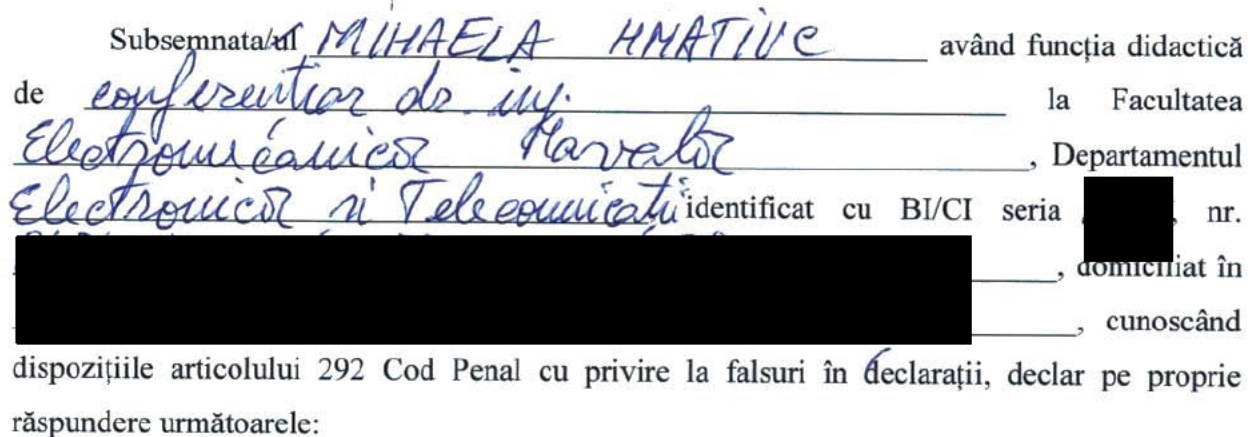 Subsemnata/ul MIHAELA HNATIUC având funcția didactică
de conferentiar dr. ing. la Facultatea
Electromecanică Navală, Departamentul
Electronică si Telecomunicatii identificat cu BI/CI seria , nr.
, domiciliat în
, cunoscând
dispozițiile articolului 292 Cod Penal cu privire la falsuri în declarații, declar pe proprie
răspundere următoarele: